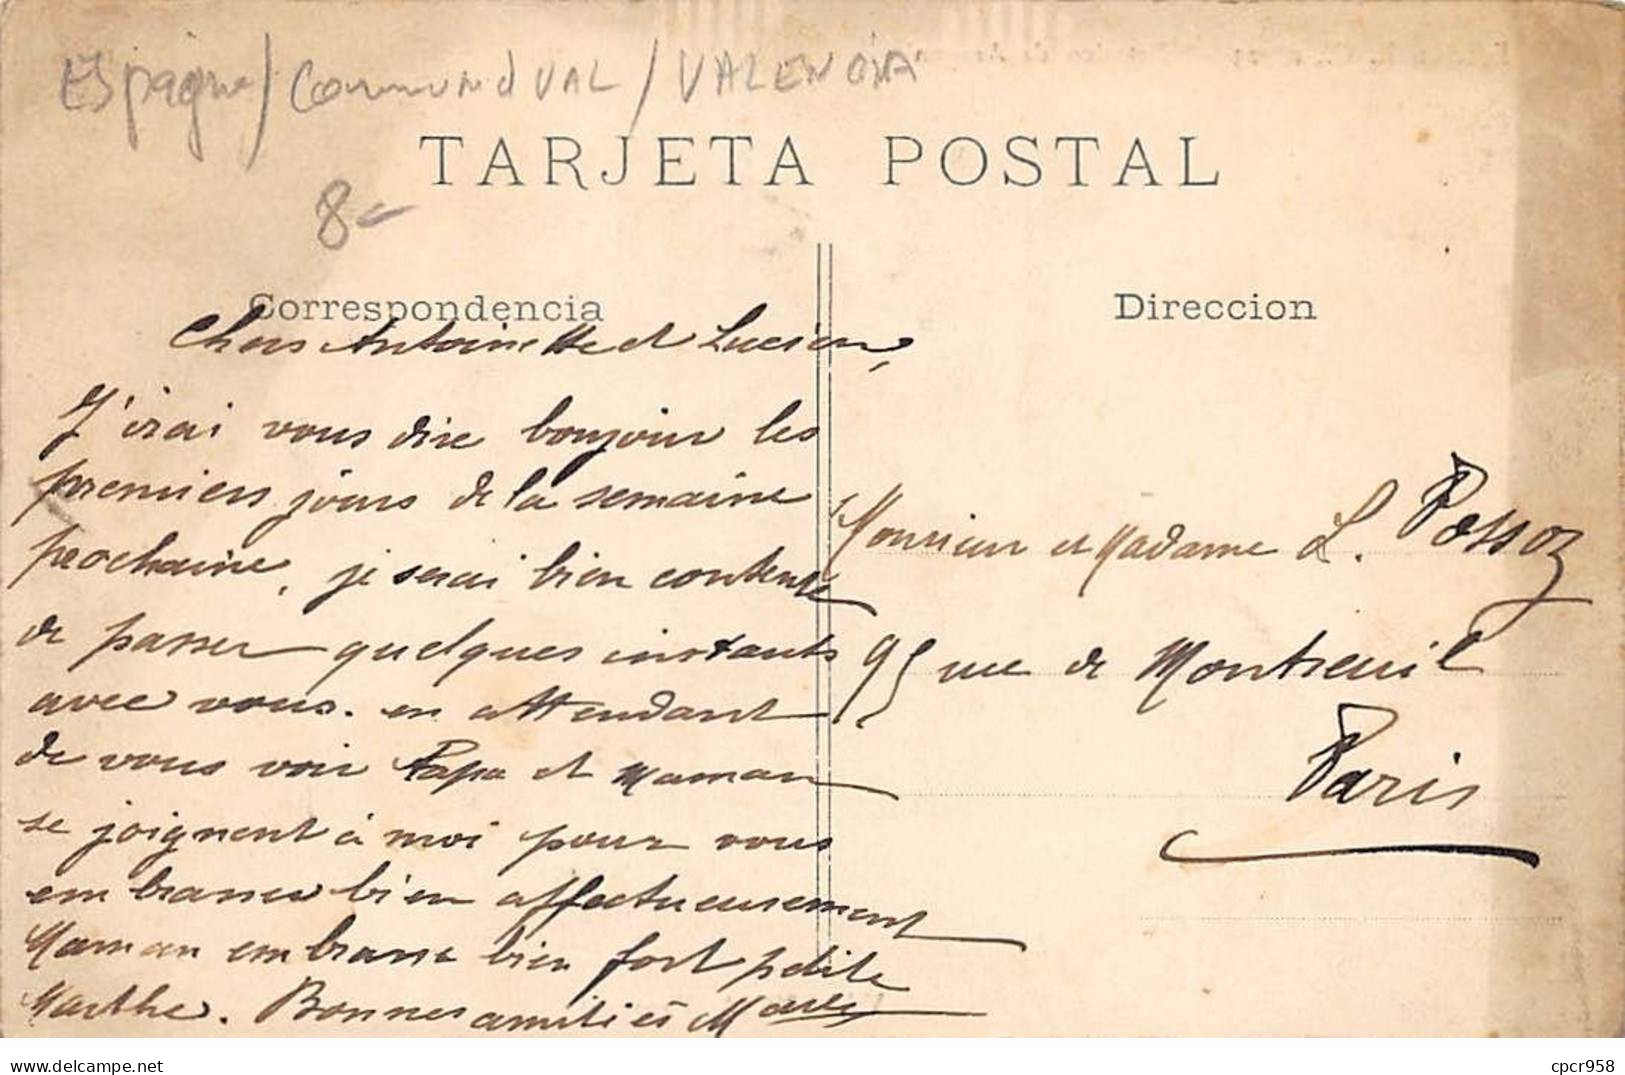 Espagne / Commun d VAL / VALENCIA
TARJETA POSTAL
8-
Correspondencia
Chers Antoinette et Lucien,
J'irai vous dire bonjour les
premiers jours de la semaine
prochaine, je serai bien contente
de passer quelques instants
avec vous. en attendant
de vous voir Papa et Maman
se joignent à moi pour vous
embrasser bien affectueusement
Maman embrasse bien fort petite
Marthe. Bonnes amitiés
Direccion
Monsieur et Madame L. Possoz
95 rue de Montreuil
Paris
delcampe.net
cpcr958